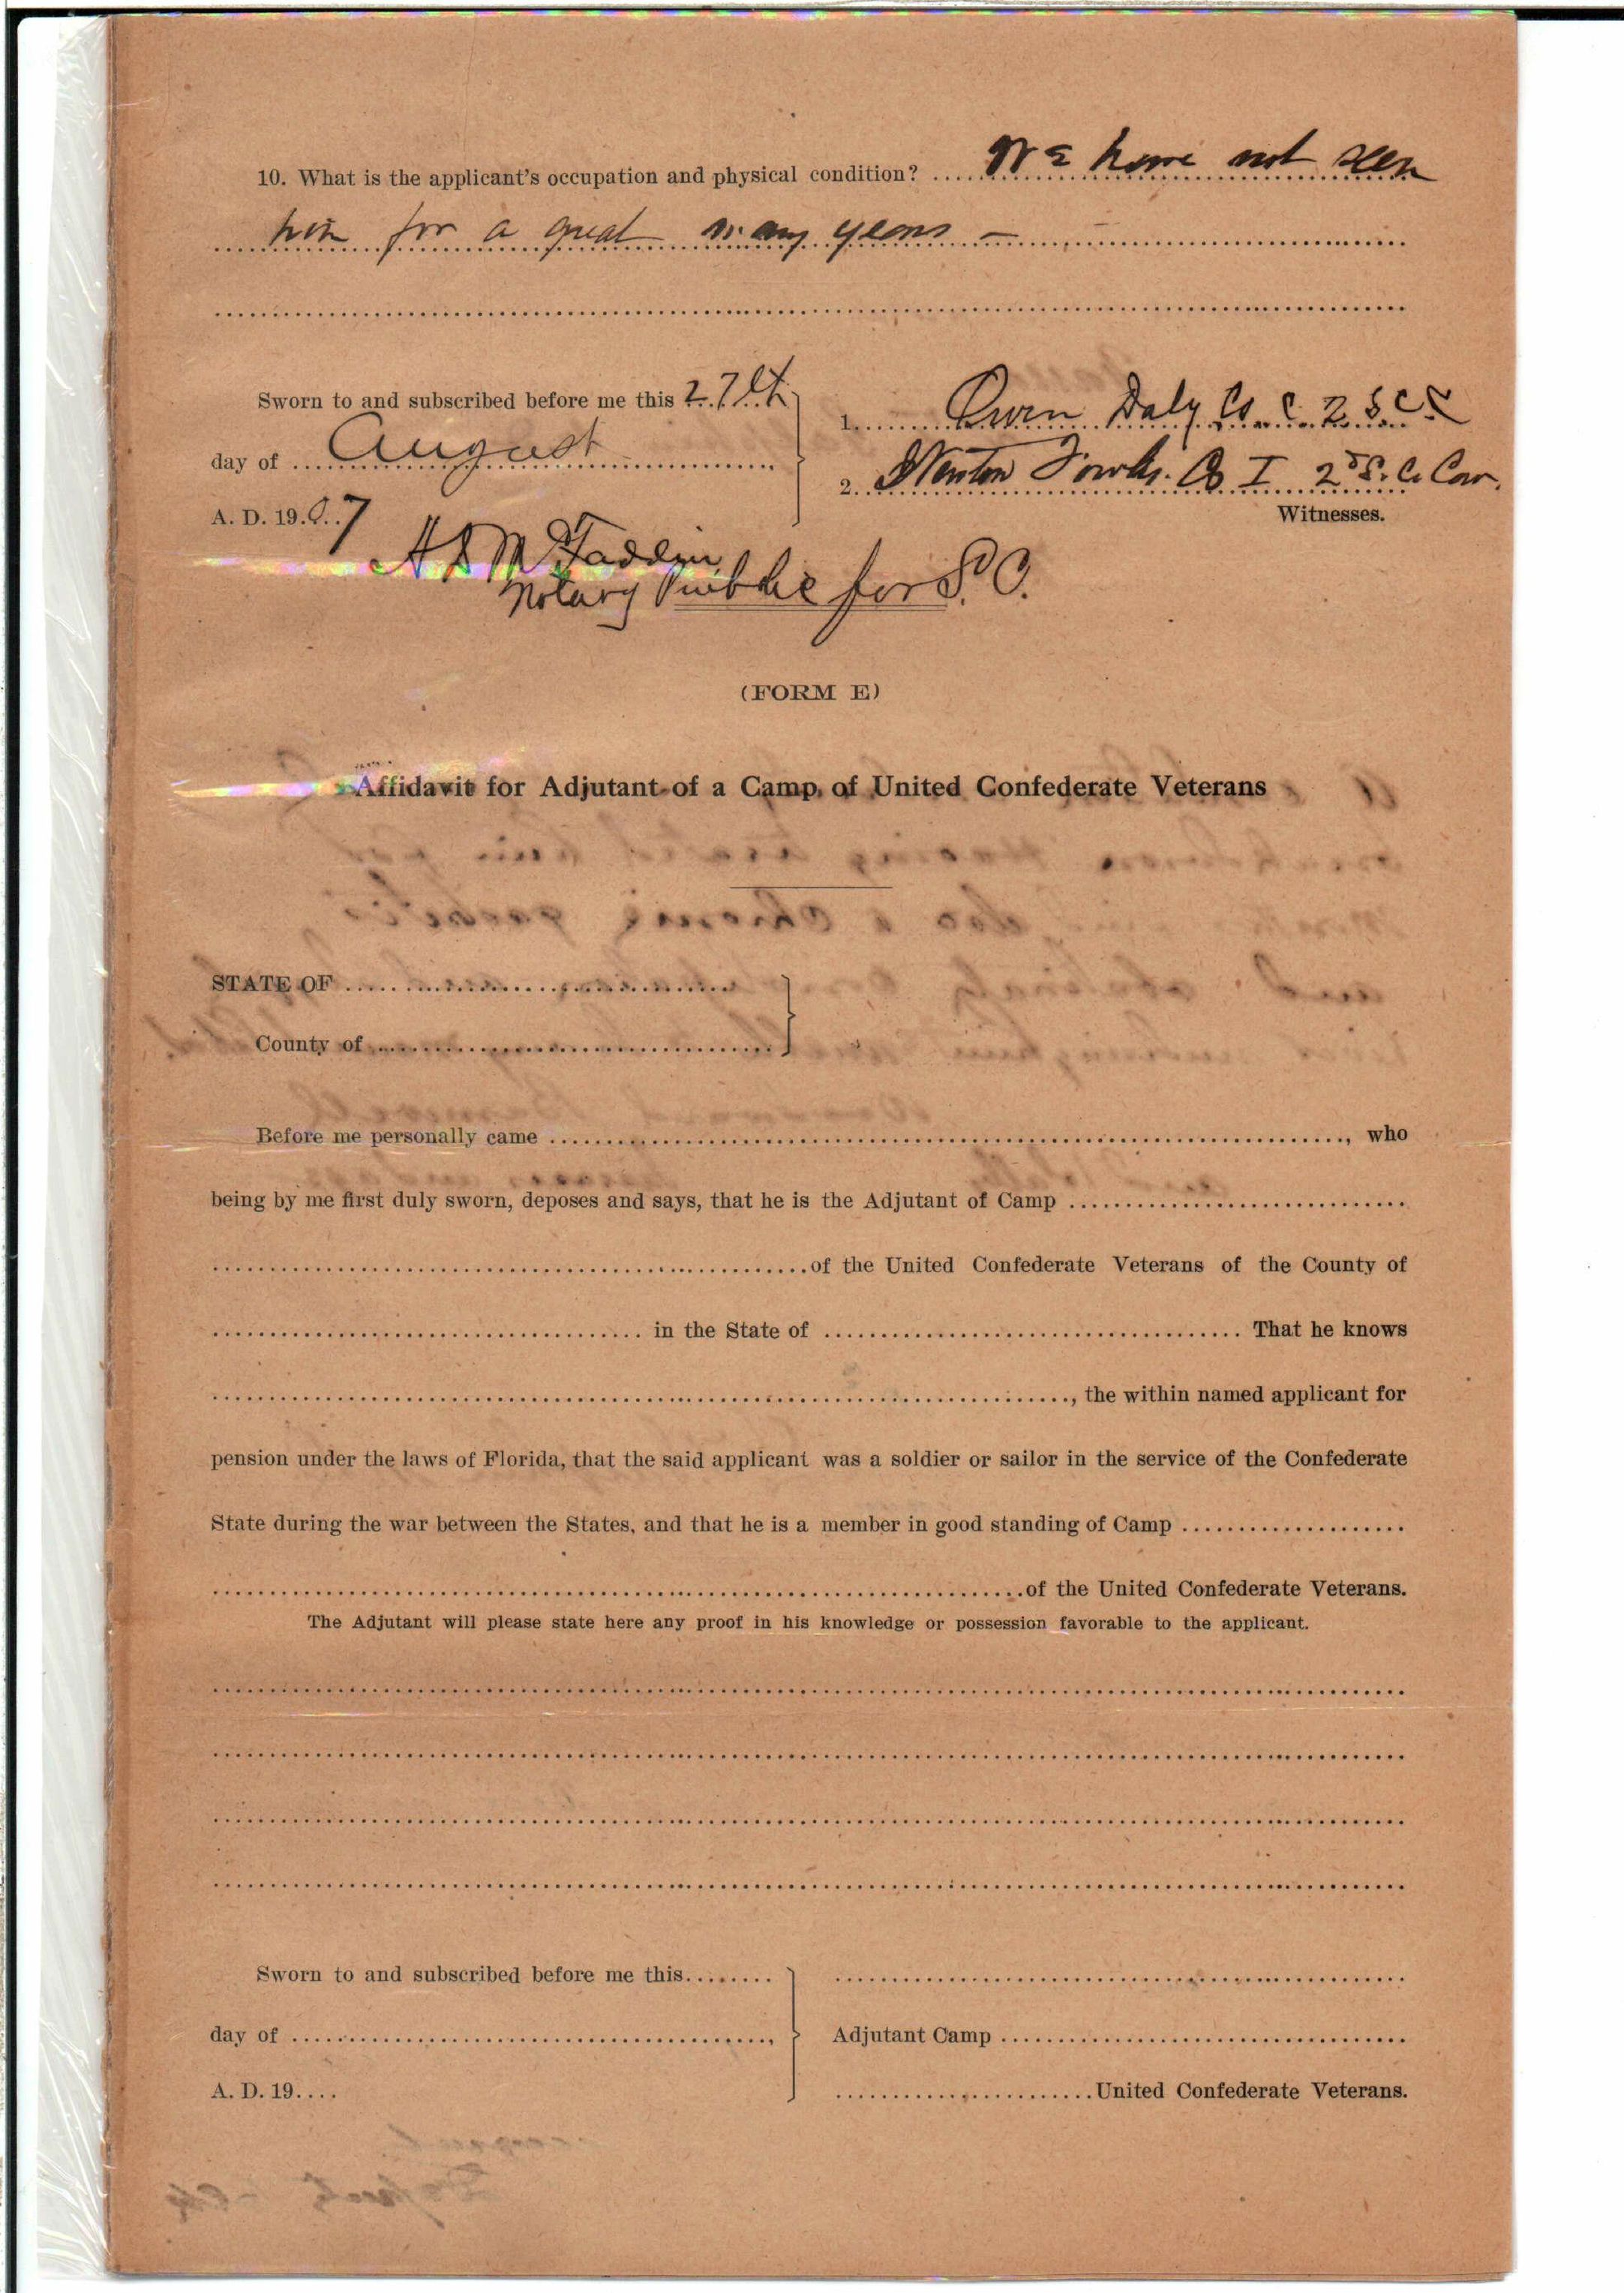 10. What is the applicant's occupation and physical condition? We have not seen
him for a great many years –
Sworn to and subscribed before me this 27th
day of August
A. D. 1907
1. Owen Daly Co. C. 2 S C C
2. Newton Fowles. Co I 2d S. C. Cav.
Witnesses.
H D McFaddin
Notary Public for S. C.
(FORM E)
Affidavit for Adjutant of a Camp of United Confederate Veterans
STATE OF
County of
Before me personally came , who
being by me first duly sworn, deposes and says, that he is the Adjutant of Camp
of the United Confederate Veterans of the County of
in the State of That he knows
, the within named applicant for
pension under the laws of Florida, that the said applicant was a soldier or sailor in the service of the Confederate
State during the war between the States, and that he is a member in good standing of Camp
of the United Confederate Veterans.
The Adjutant will please state here any proof in his knowledge or possession favorable to the applicant.
Sworn to and subscribed before me this
day of ,
A. D. 19
Adjutant Camp
United Confederate Veterans.